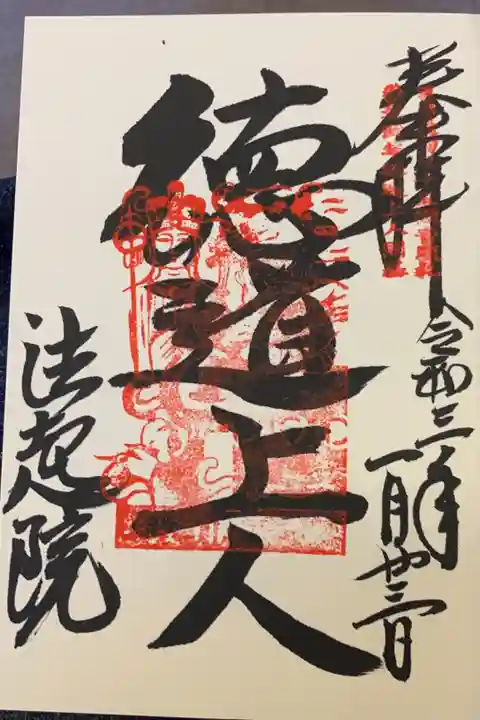 奉拝
令和三年
一月廿三日
徳道上人
法起院